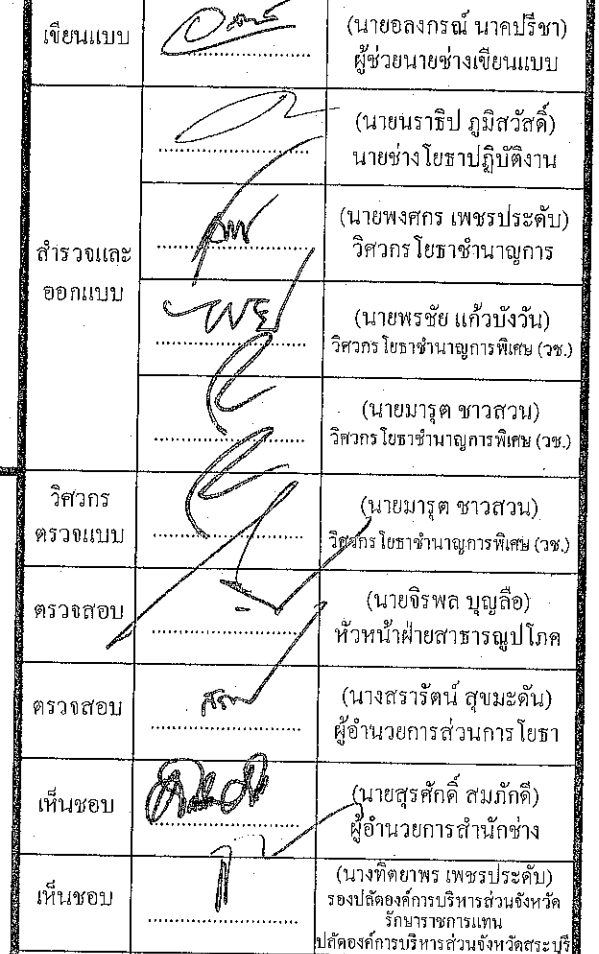 เขียนแบบ
(นายอลงกรณ์ นาคปรีชา)
ผู้ช่วยนายช่างเขียนแบบ
สำรวจและ
ออกแบบ
(นายนราธิป ภูมิสวัสดิ์)
นายช่างโยธาปฏิบัติงาน
(นายพงศกร เพชรประดับ)
วิศวกรโยธาชำนาญการ
(นายพรชัย แก้วบังวัน)
วิศวกรโยธาชำนาญการพิเศษ (วช.)
(นายมารุต ชาวสวน)
วิศวกรโยธาชำนาญการพิเศษ (วช.)
วิศวกร
ตรวจแบบ
(นายมารุต ชาวสวน)
วิศวกรโยธาชำนาญการพิเศษ (วช.)
ตรวจสอบ
(นายจิรพล บุญลือ)
หัวหน้าฝ่ายสาธารณูปโภค
ตรวจสอบ
(นางสรารัตน์ สุขมะดัน)
ผู้อำนวยการส่วนการโยธา
เห็นชอบ
(นายสุรศักดิ์ สมภักดี)
ผู้อำนวยการสำนักช่าง
เห็นชอบ
(นางทิตยาพร เพชรประดับ)
รองปลัดองค์การบริหารส่วนจังหวัด
รักษาราชการแทน
ปลัดองค์การบริหารส่วนจังหวัดสระบุรี